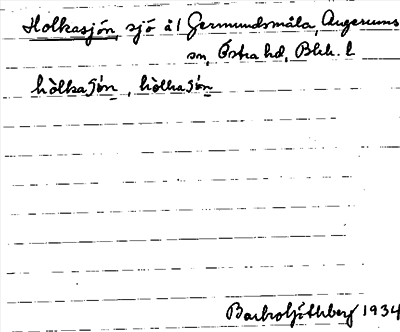 Holkasjön, sjö å 1 Germundsmåla, Augerums
sn, Östra hd, Blek. l
hòlkasjó̀n, hòlkasjó̀n
Götlberg 1934